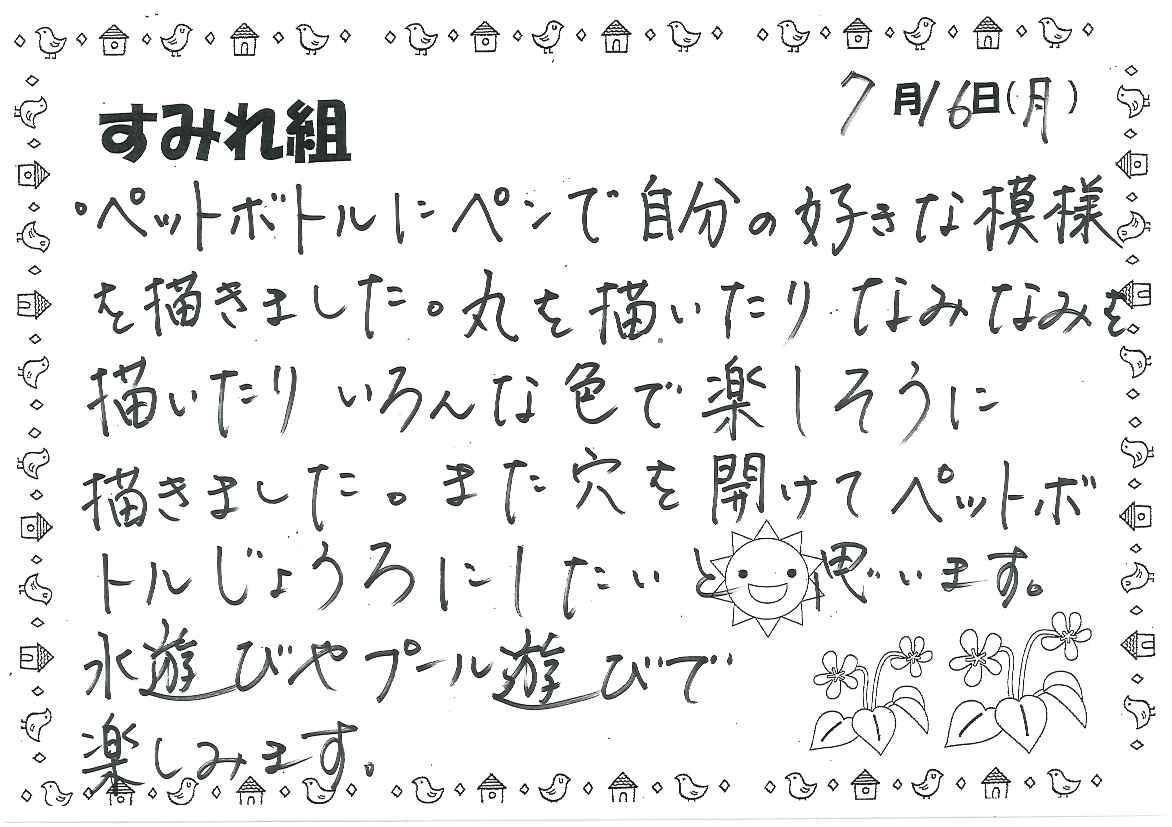 すみれ組
7月16日(月)
・ペットボトルにペンで自分の好きな模様
を描きました。丸を描いたりなみなみを
描いたりいろんな色で楽しそうに
描きました。また穴を開けてペットボ
トルじょうろにしたいと思います。
水遊びやプール遊びで
楽しみます。